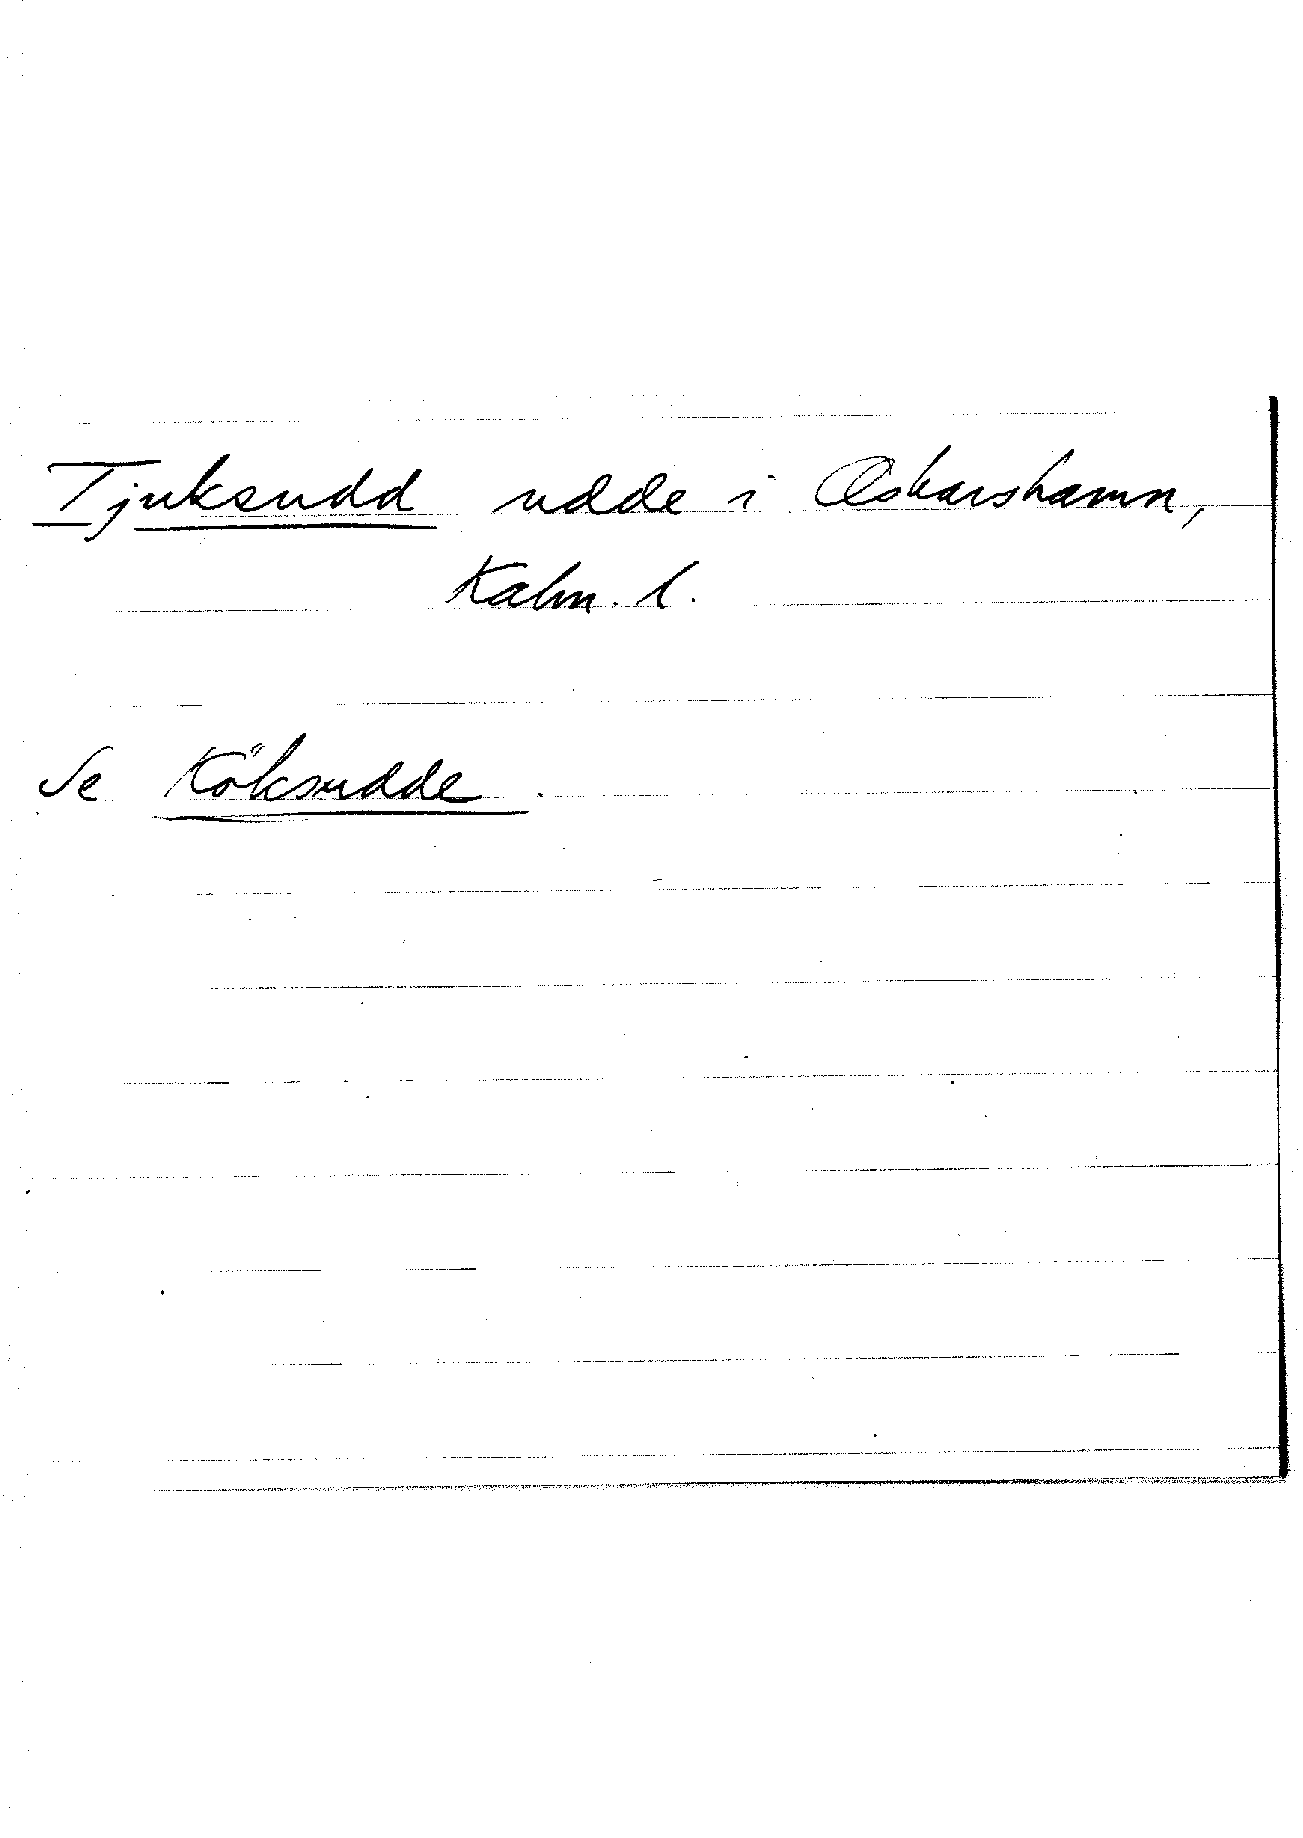 Tjuksudd udde i Oskarshamn,
Kalm. l.
Se Köksudde.